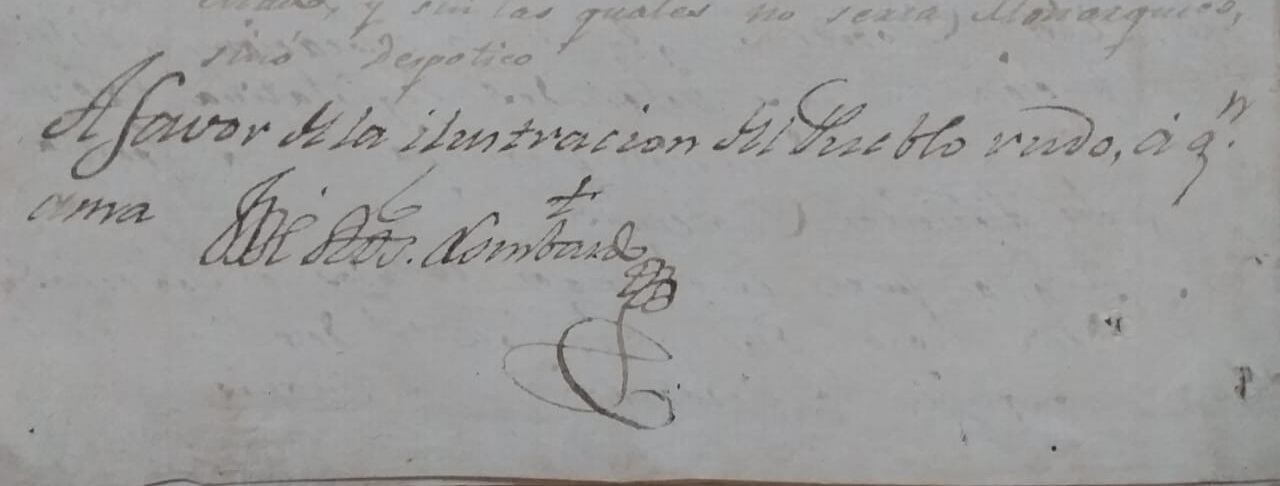 y sin las quales no seria, Monarquico,
sinó despotico
A favor de la ilustracion del Pueblo rudo, á qⁿ.
ama
Lombardo